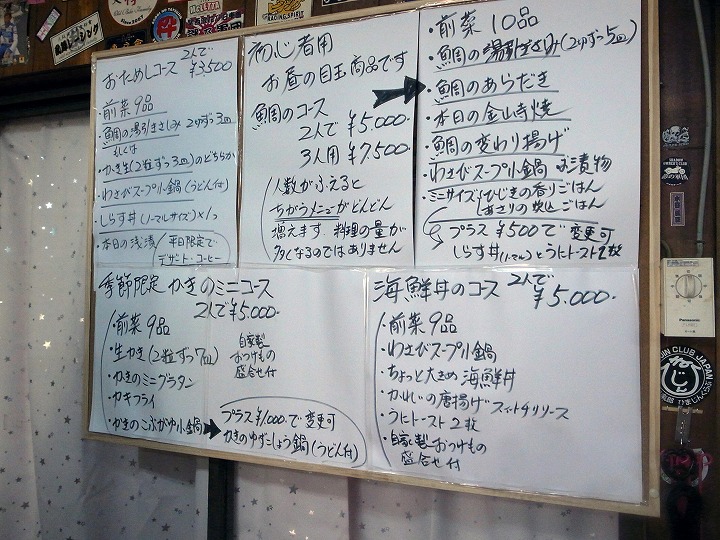 おためしコース 2人で ¥3,500
前菜 9品
・鯛の湯引きさしみ 2切ずつ3皿
もしくは
・かき生(2粒ずつ3皿)のどちらか
・わさびスープ小鍋(うどん付)
・しらす丼(ノーマルサイズ)×1つ
・本日の浅漬
平日限定で
デザート・コーヒー
初心者用
お昼の目玉商品です
鯛のコース
2人で ¥5,000
3人用 ¥7,500
人数がふえると
ちがうメニューがどんどん
増えます 料理の量が
多くなるのではありません
・前菜 10品
・鯛の湯引きさしみ(2切ずつ5皿)
・鯛のあらだき
・本日の金山寺焼
・鯛の変わり揚げ
・わさびスープ小鍋 お漬物
・ミニサイズひじきの香りごはん
あさりの炊込ごはん
プラス¥500で変更可
しらす丼(ノーマル)とうにトースト2枚
季節限定 かきのミニコース
2人で¥5,000-
・前菜 9品
・生かき(2粒ずつ7皿)
・かきのミニグラタン
・カキフライ
・かきのこぶがゆ小鍋
自家製
おつけもの
盛合せ付
プラス¥1,000で変更可
かきのゆずこしょう鍋(うどん付)
海鮮丼のコース 2人で ¥5,000-
・前菜 9品
・わさびスープ小鍋
・ちょっと大きめ海鮮丼
・かれいの唐揚げスイートチリソース
・うにトースト2枚
・自家製おつけもの
盛合せ付
Panasonic